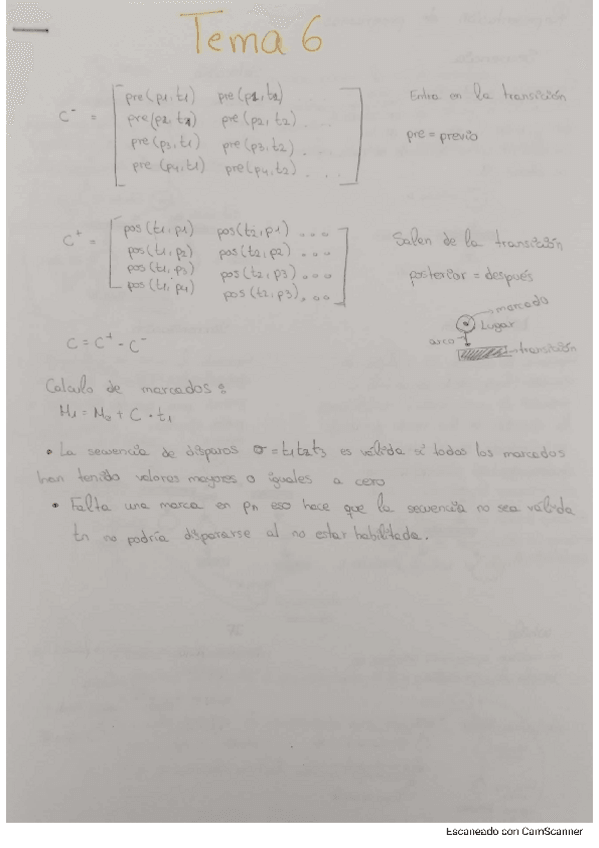 Tema 6
C⁻ = [ pre(p1,t1) pre(p2,t2)
pre(p2,t1) pre(p2,t2) ...
pre(p3,t1) pre(p3,t2) ...
pre(p4,t1) pre(p4,t2) ... ]
Entra en la transición
pre = previo
C⁺ = [ pos(t1,p1) pos(t2,p1) ...
pos(t1,p2) pos(t2,p2) ...
pos(t1,p3) pos(t2,p3) ...
pos(t1,p4) pos(t2,p3) ... ]
Salen de la transición
posterior = después
marcado
Lugar
arco
transición
C = C⁺ - C⁻
Calculo de marcados:
M1 = M0 + C · t1
• La secuencia de disparos σ = t1t2t3 es válida si todos los marcados
han tenido valores mayores o iguales a cero
• Falta una marca en pn eso hace que la secuencia no sea válida
tn no podría dispararse al no estar habilitada.
Escaneado con CamScanner